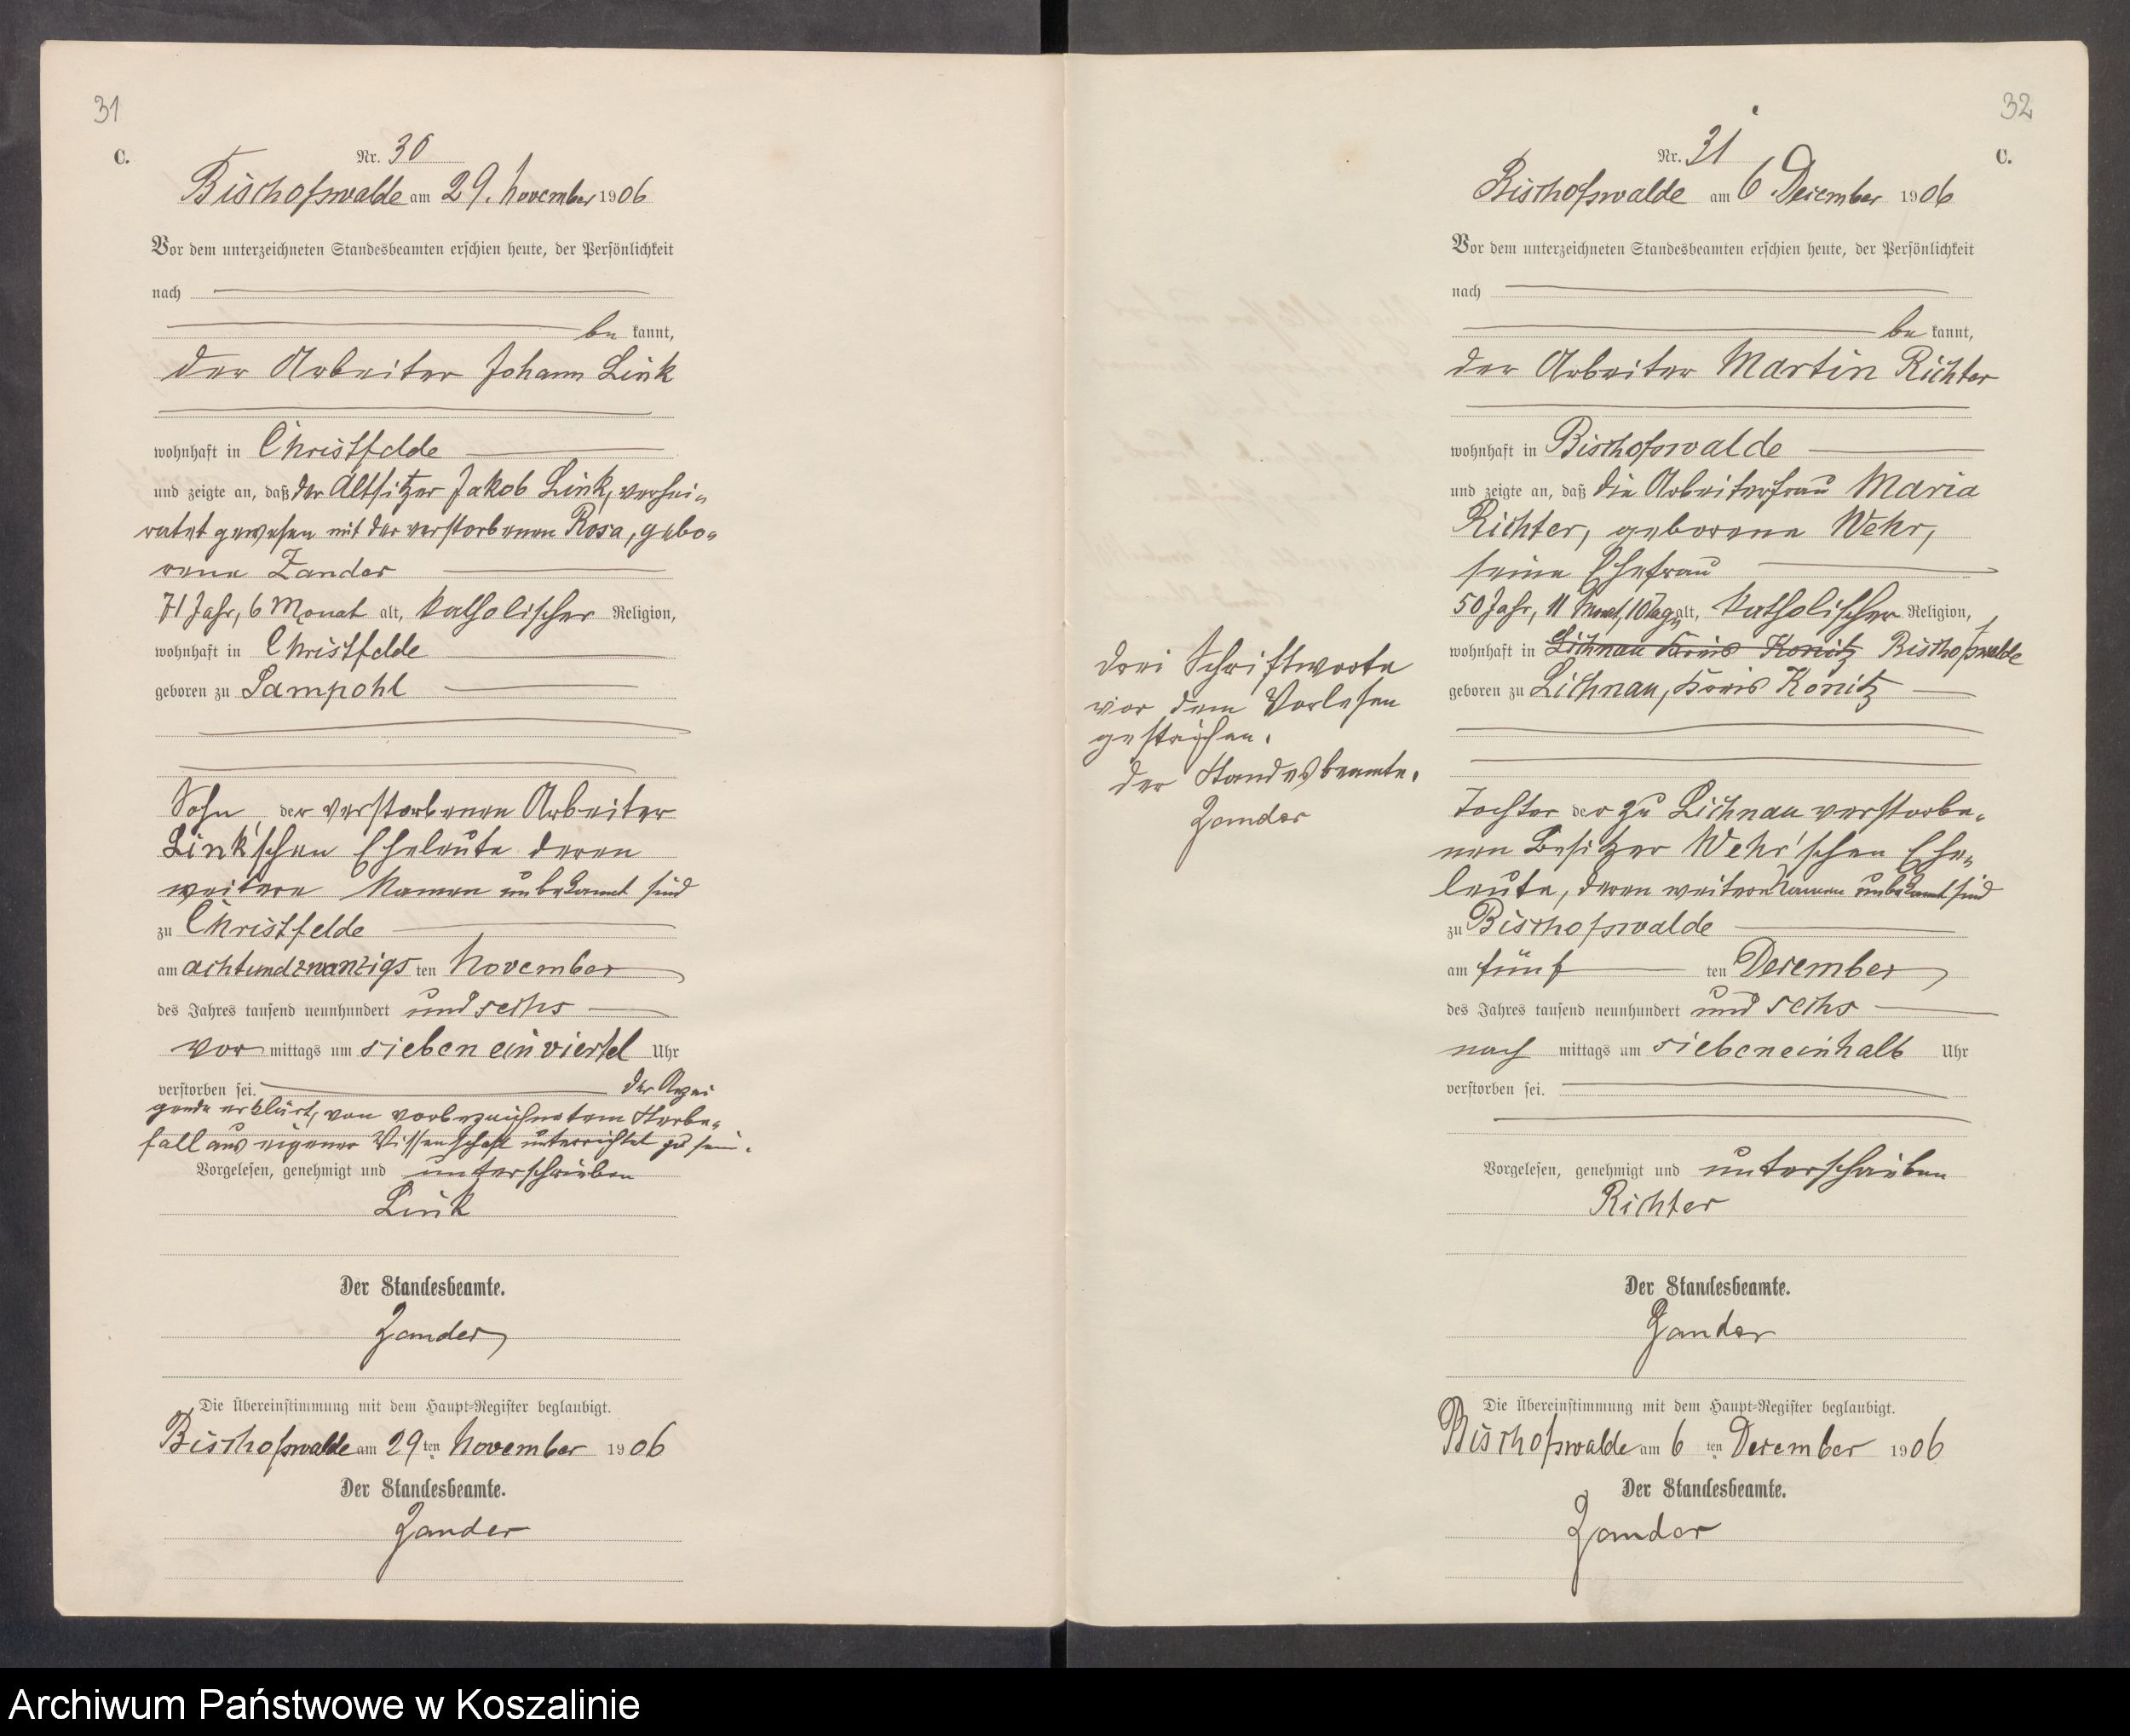 31
C.
Nr. 30
Bischofswalde am 29. November 1906
Vor dem unterzeichneten Standesbeamten erschien heute, der Persönlichkeit
nach
be kannt,
der Arbeiter Johann Link
wohnhaft in Christfelde
und zeigte an, daß der Altsitzer Jakob Link, verhei-
ratet gewesen mit der verstorbenen Rosa, gebo-
rene Zander
71 Jahr, 6 Monat alt, katholischer Religion,
wohnhaft in Christfelde
geboren zu Sampohl
Sohn der verstorbenen Arbeiter
Link'schen Eheleute deren
weitere Namen unbekannt sind
zu Christfelde
am achtundzwanzigs ten November
des Jahres tausend neunhundert und sechs
vor mittags um sieben ein viertel Uhr
verstorben sei. Der Anzei
gende erklärt, von vorbezeichnetem Sterbe-
fall aus eigener Wissenschaft unterrichtet zu sein.
Vorgelesen, genehmigt und unterschrieben
Link
Der Standesbeamte.
Zander
Die Übereinstimmung mit dem Haupt-Register beglaubigt.
Bischofswalde am 29 ten November 1906
Der Standesbeamte.
Zander
32
C.
Nr. 31
Bischofswalde am 6. Dezember 1906
Vor dem unterzeichneten Standesbeamten erschien heute, der Persönlichkeit
nach
be kannt,
der Arbeiter Martin Richter
wohnhaft in Bischofswalde
und zeigte an, daß die Arbeiterfrau Maria
Richter, geborene Wehr,
seine Ehefrau
50 Jahr, 11 Monat, 10 Tage alt, katholischer Religion,
wohnhaft in Lichnau Kreis Konitz Bischofswalde
geboren zu Lichnau, Kreis Konitz
Tochter der zu Lichnau verstorbe-
nen Besitzer Wehr'schen Ehe-
leute, deren weitere Namen unbekannt sind
zu Bischofswalde
am fünf ten Dezember
des Jahres tausend neunhundert und sechs
nach mittags um sieben einhalb Uhr
verstorben sei.
Vorgelesen, genehmigt und unterschrieben
Richter
Der Standesbeamte.
Zander
Die Übereinstimmung mit dem Haupt-Register beglaubigt.
Bischofswalde am 6 ten Dezember 1906
Der Standesbeamte.
Zander
Drei Schriftworte
vor dem Vorlesen
gestrichen.
Der Standesbeamte.
Zander
Archiwum Państwowe w Koszalinie